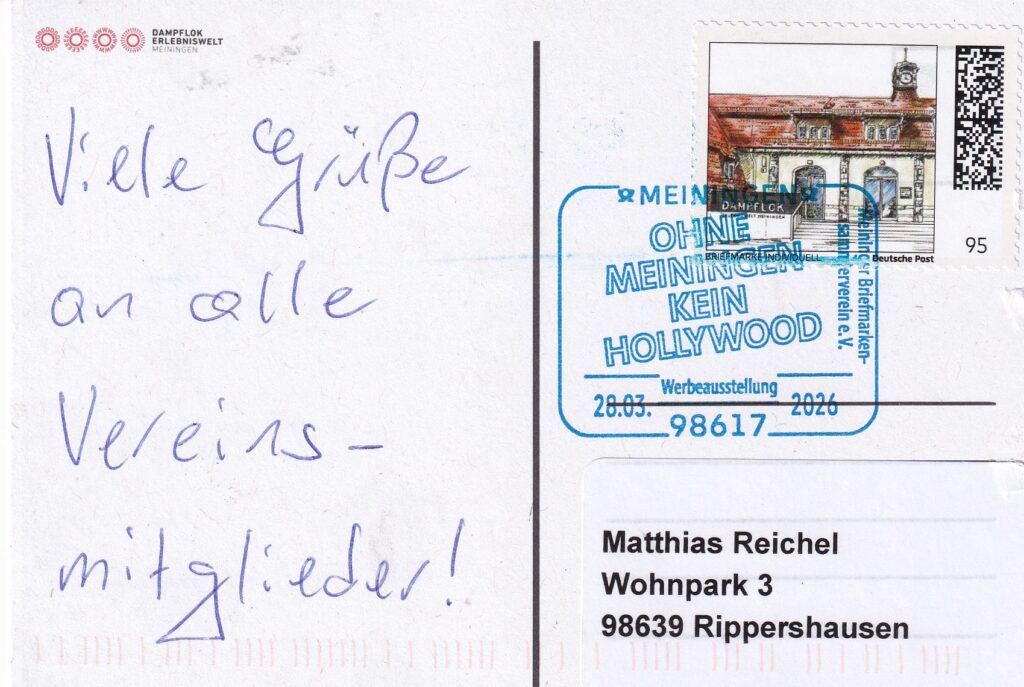 DAMPFLOK
ERLEBNISWELT
MEININGEN
Viele Grüße
an alle
Vereins-
mitglieder!
DAMPFLOK
BRIEFMARKE INDIVIDUELL
Deutsche Post
95
MEININGEN
OHNE
MEININGEN
KEIN
HOLLYWOOD
Werbeausstellung
28.03. 2026
98617
Meininger Briefmarken-
sammlerverein e.V.
Matthias Reichel
Wohnpark 3
98639 Rippershausen